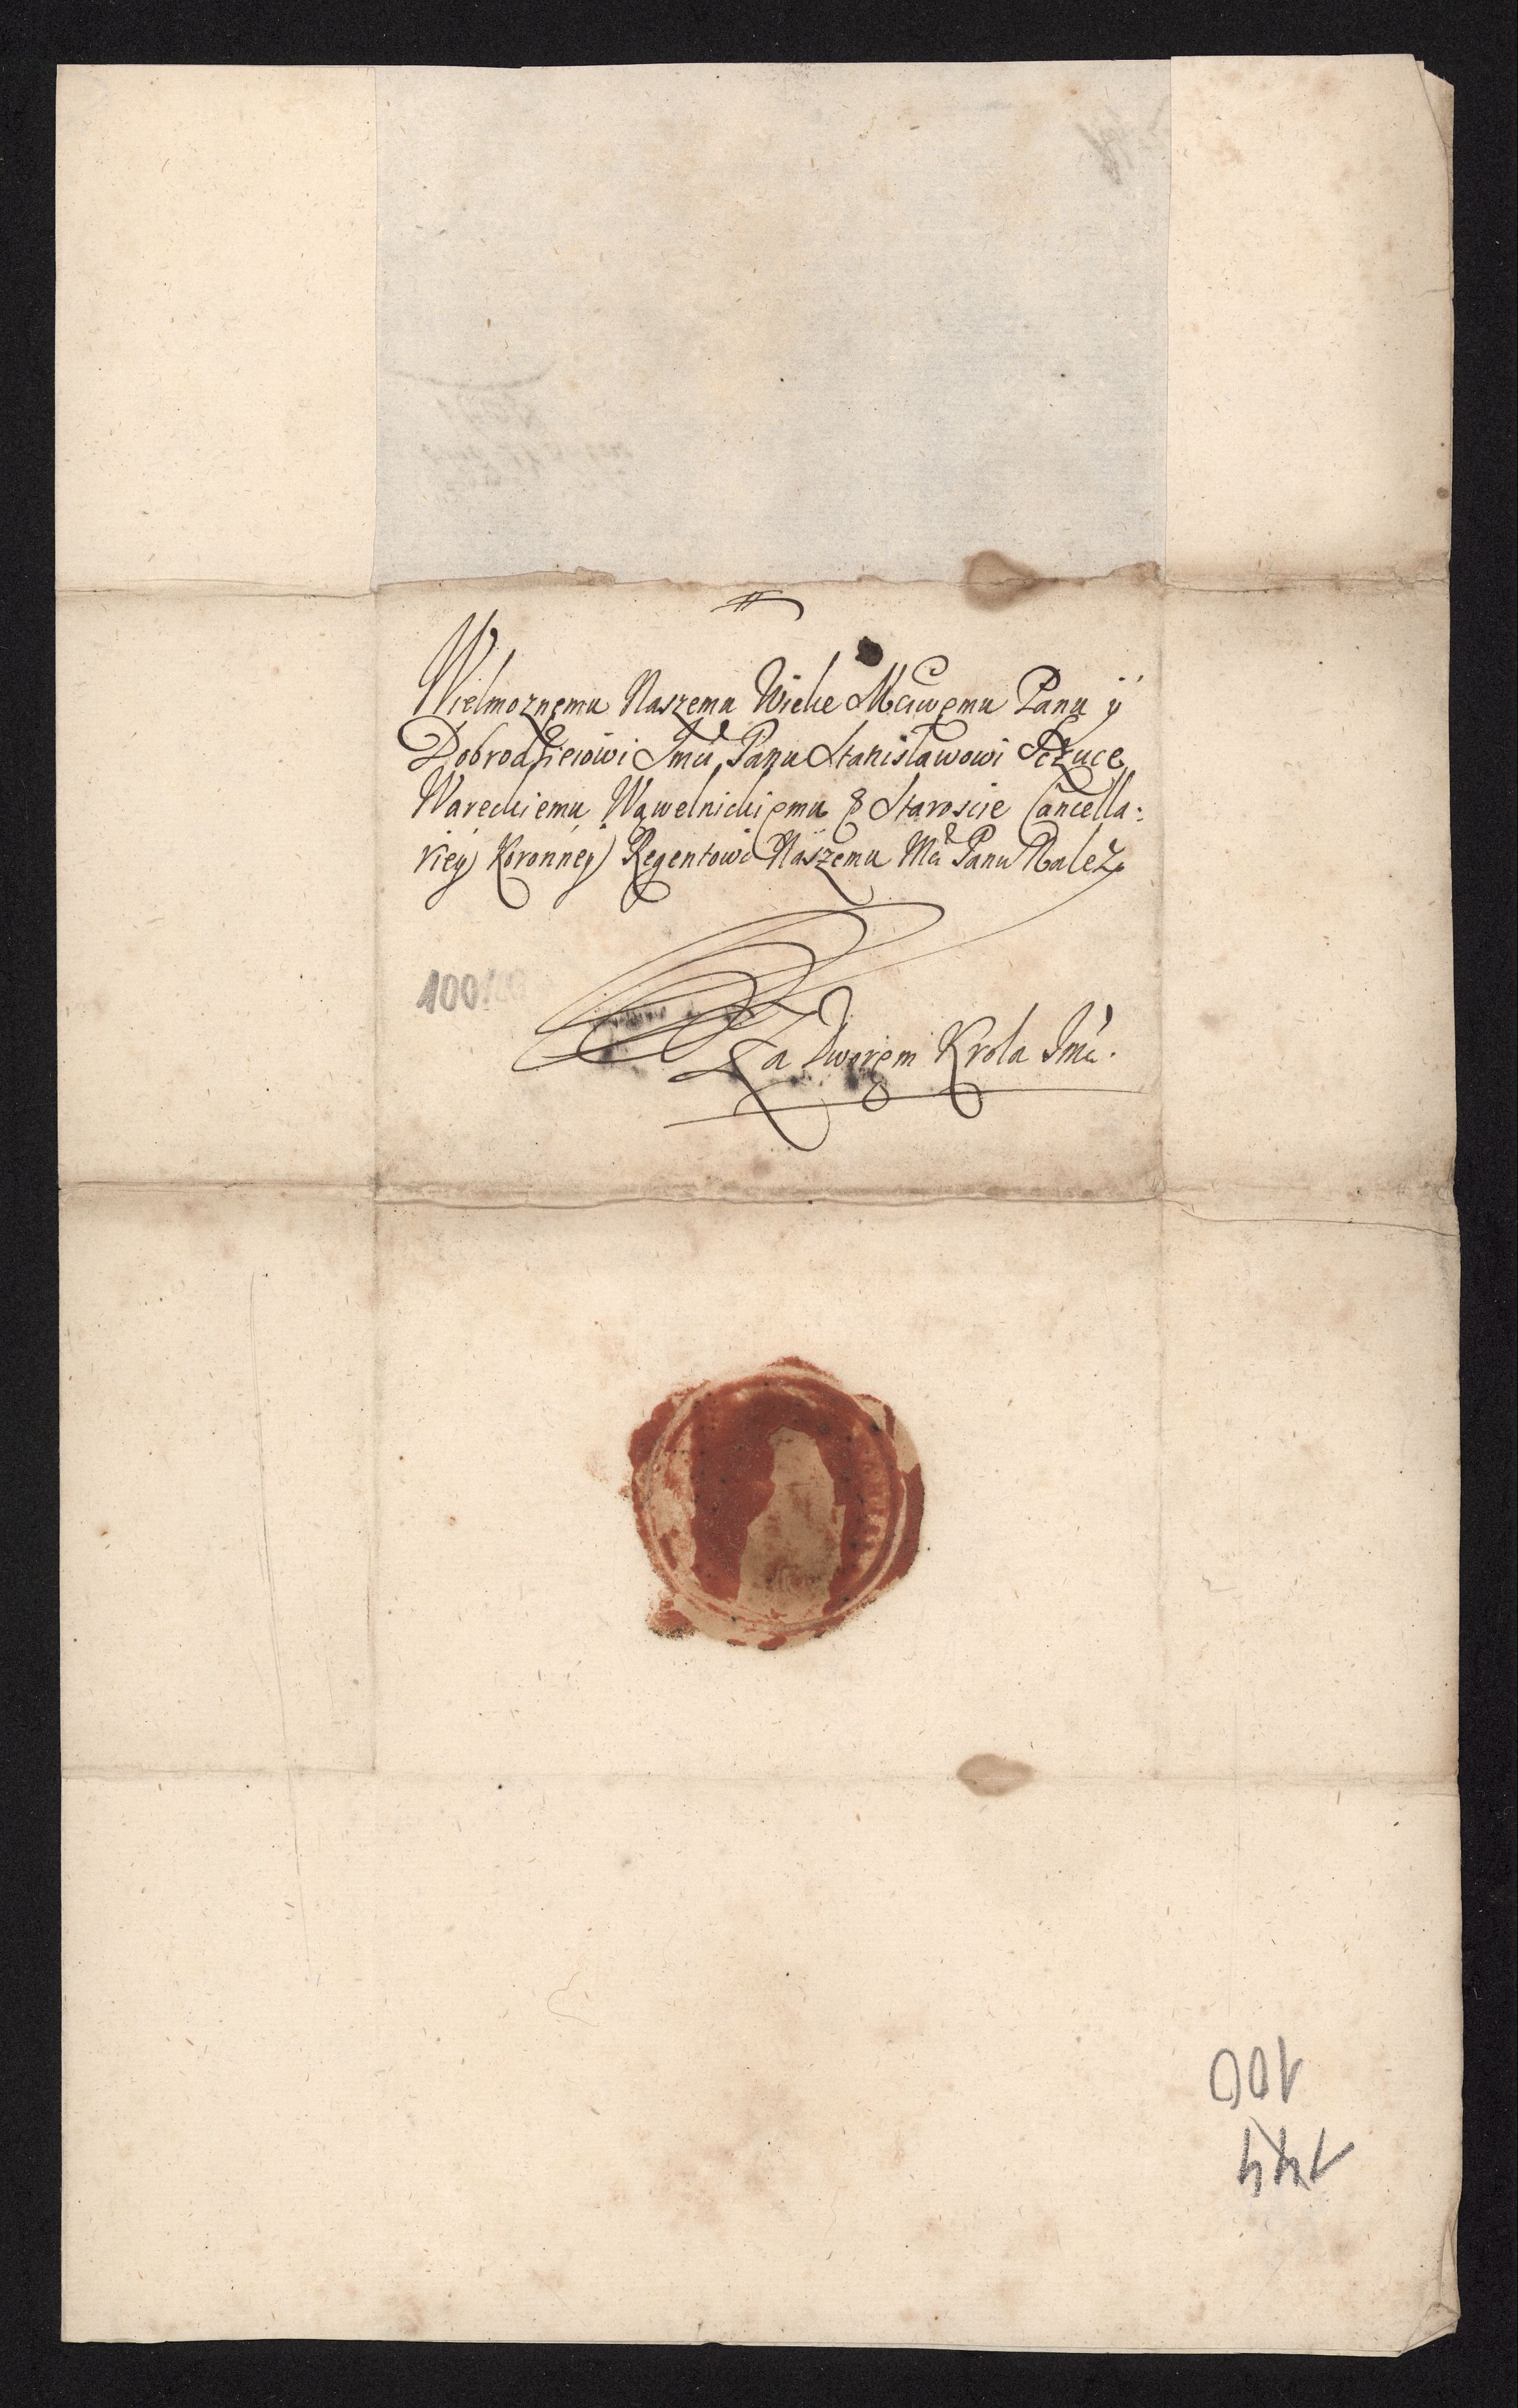 Wielmoznemu Naszemu Wielce Mciwemu Panu ÿ
Dobrodzieiowi Jmci Panu Stanislawowi Sczuce
Wareckiemu Wąwelnickiemu & Staroscie Cancella:
riey Koronney Regentowi Naszemu Mci Panu Należy
100
Za Dworem Krola Jmci.
100
144